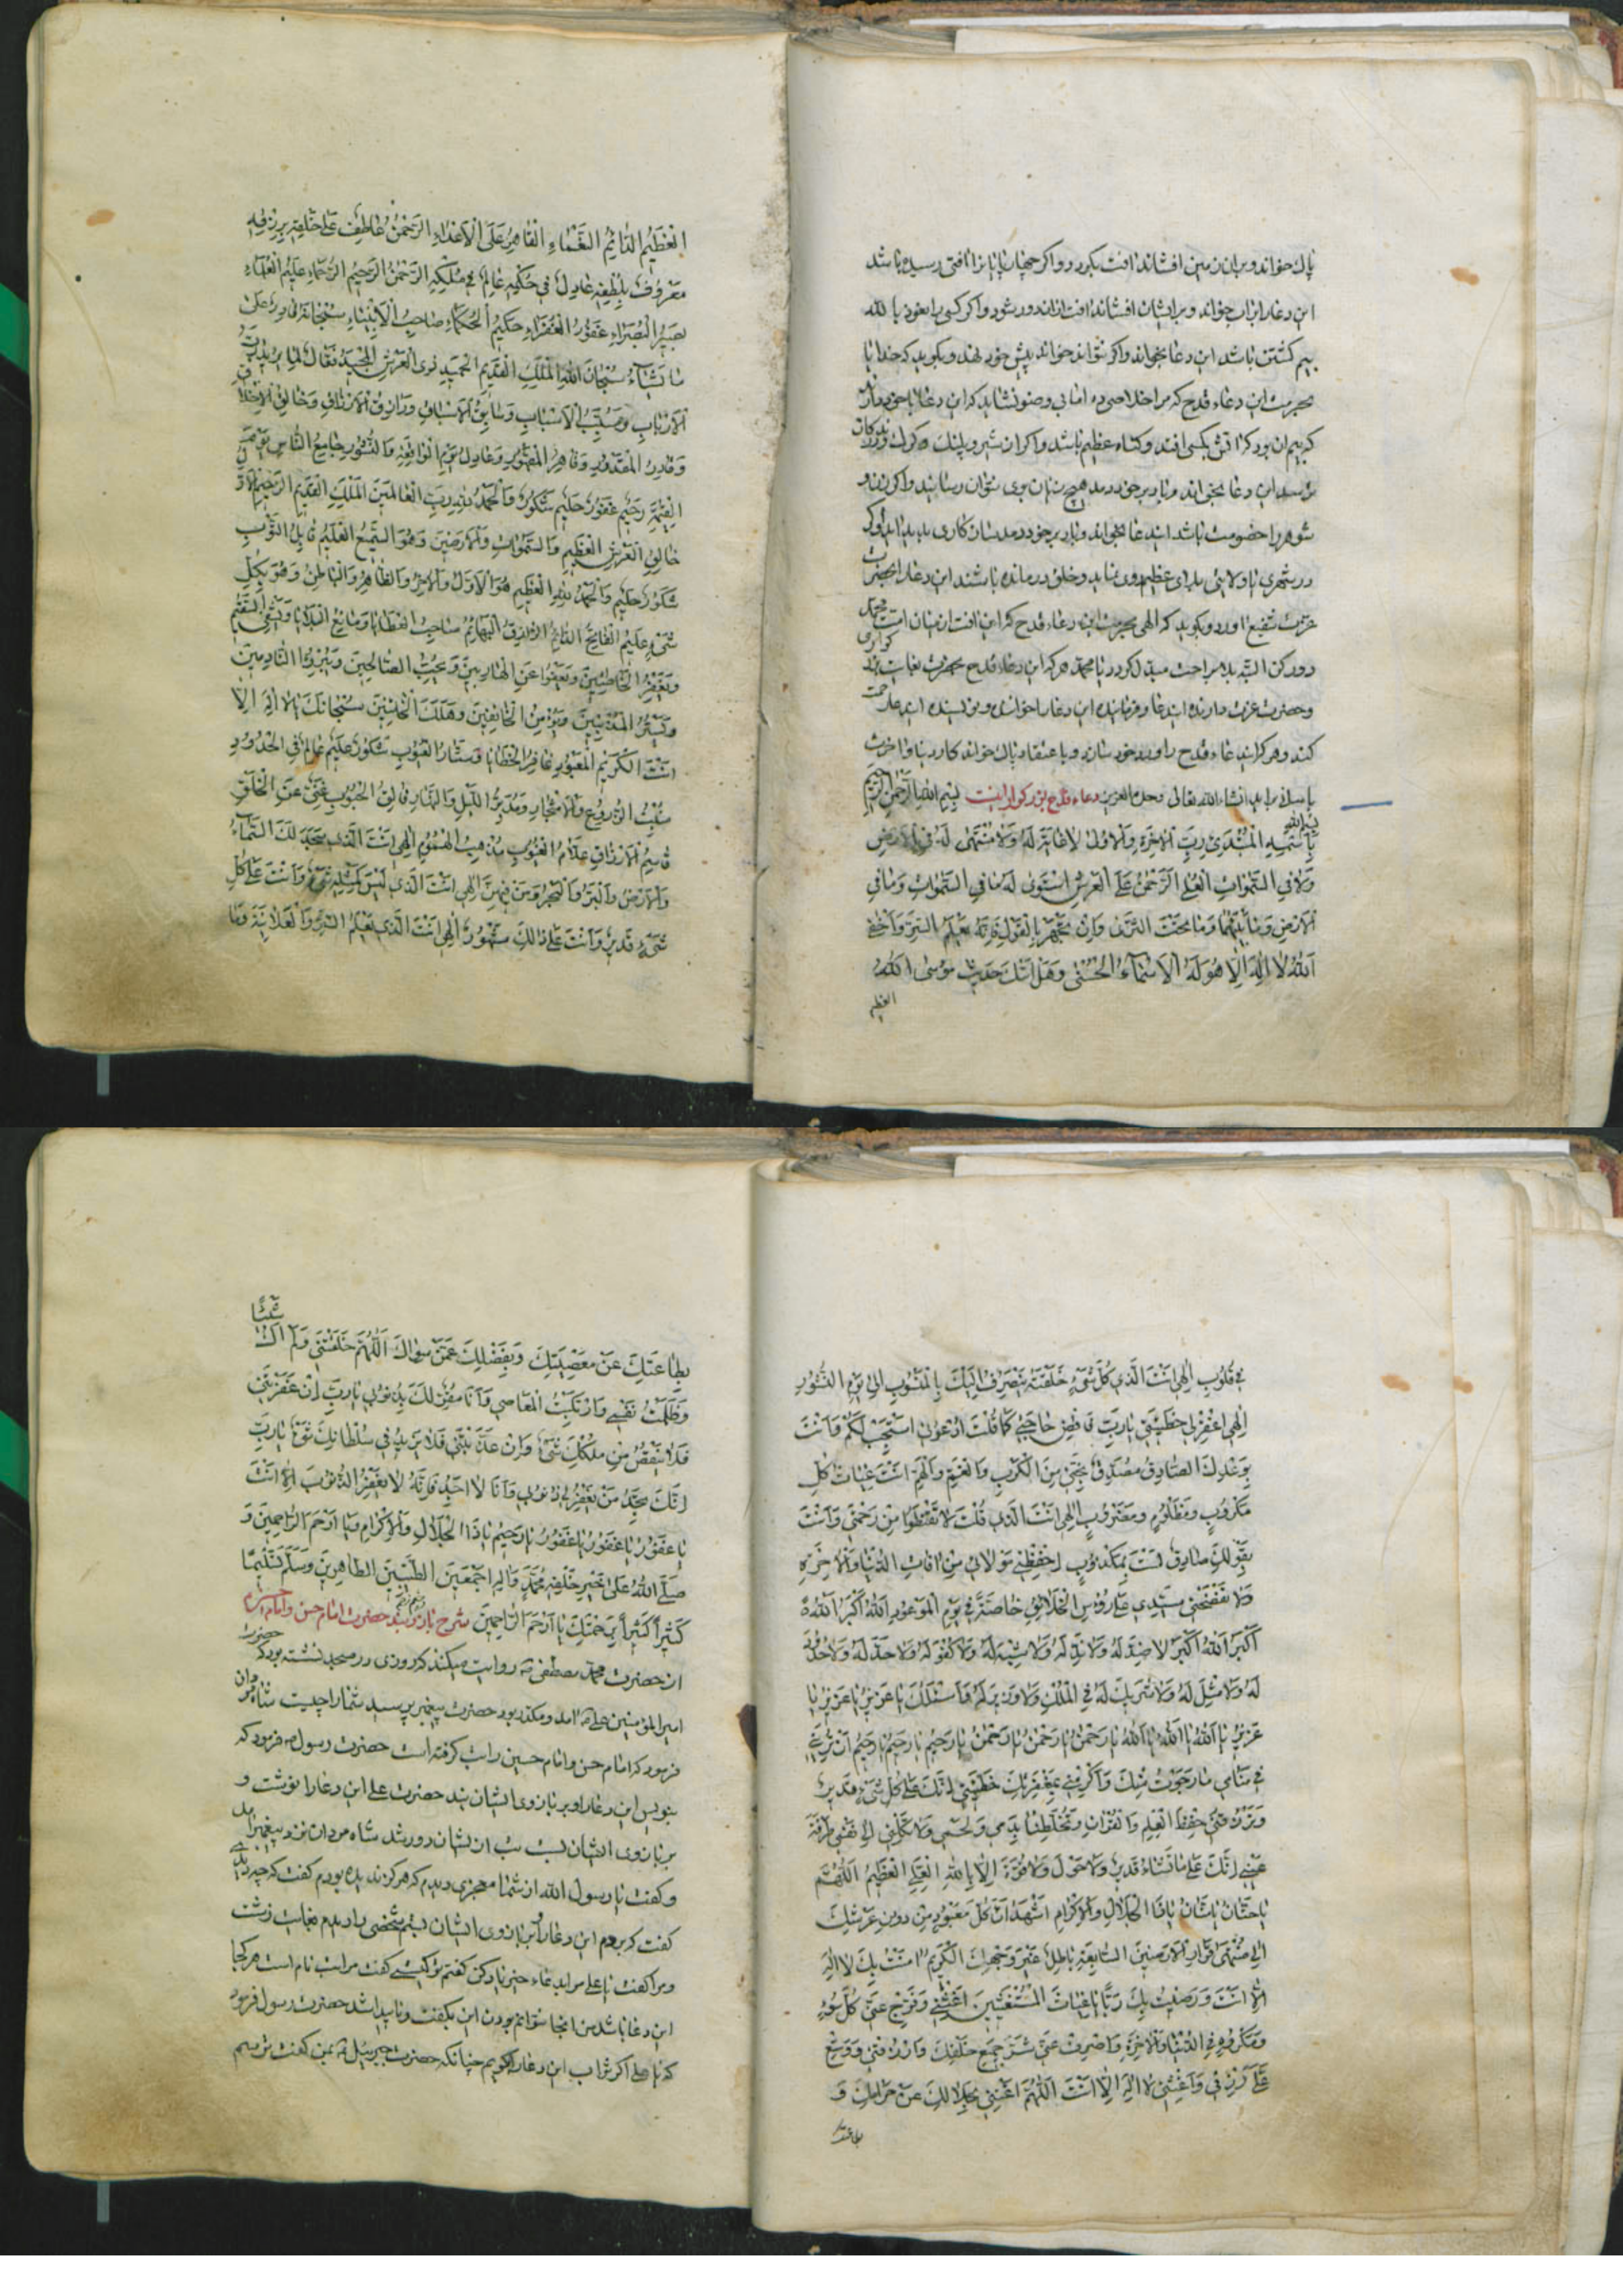 پاك خواند و بران زمین افشاند آفت نکیرد و اکر چهار پایانرا آفتی رسیده باشد
این دعا را برآب خواند و برایشان افشاند آفت ازان دور شود و اکر کسی را نعوذ بالله
بیم کشتن باشد این دعا بخواند و اکر نتواند خواند پیش خود نهد و بکوید که خدایا
بحرمت این دعاء قدح که مرا خلاصی ده
که بیم آن بود که آتش بکسی افتد و کناه عظیم باشد و اکر از شیر و پلنك و کرك
بترسد این دعا بخواند و باد بر خود دمد هیچ زیان بوی نتوان رسانید و اکر زن و
شوهر را خصومت باشد این دعا بخواند و باد بر خود دمد
در شهری یا ولایتی بلای عظیم روی نماید و خلق درمانده باشند این دعا را بحضرت
عزت شفیع آورد و بکوید که الهی بحرمت این دعاء قدح که این آفت از میان امت محمد
دور کن البته بلا براحت مبدل کردد یا محمد هر که این دعاء قدح
و حضرت عزت دارنده این دعا و خواننده این دعا را
کند و هر که این دعاء قدح را ورد خود سازد و با عتقاد پاك خواند کار دنیا و آخرت
باسلام براید انشاء الله تعالی وحده العزیز دعاء قدح بزرکوار اینست بسم الله الرحمن الرحیم
بسم الله
بِاسْمِهِ الْمُبْتَدِئِ رَبِّ الْآخِرَةِ وَالْأُولَى لَا غَايَةَ لَهُ وَلَا مُنْتَهَى لَهُ فِي الْأَرْضِ
وَلَا فِي السَّمَوَاتِ الْعُلَى الرَّحْمَنُ عَلَى الْعَرْشِ اسْتَوَى لَهُ مَا فِي السَّمَوَاتِ وَمَا فِي
الْأَرْضِ وَمَا بَيْنَهُمَا وَمَا تَحْتَ الثَّرَى وَإِنْ تَجْهَرْ بِالْقَوْلِ فَإِنَّهُ يَعْلَمُ السِّرَّ وَأَخْفَى
اللَّهُ لَا إِلَهَ إِلَّا هُوَ لَهُ الْأَسْمَاءُ الْحُسْنَى وَهَلْ أَتَاكَ حَدِيثُ مُوسَى اللَّهُ
العظیم
الْعَظِيمُ الدَّائِمُ النَّعْمَاءِ الْقَاهِرُ عَلَى الْأَعْدَاءِ الرَّحْمَنُ عَاطِفٌ عَلَى خَلْقِهِ بِرِزْقِهِ
مَعْرُوفٌ بِلُطْفِهِ عَادِلٌ فِي حُكْمِهِ عَالِمٌ فِي مُلْكِهِ الرَّحْمَنُ الرَّحِيمُ الرُّحَمَاءِ عَلِيمُ الْعُلَمَاءِ
بَصِيرُ الْبُصَرَاءِ غَفُورُ الْغُفَرَاءِ حَكِيمُ الْحُكَمَاءِ صَاحِبُ الْأَنْبِيَاءِ سُبْحَانَهُ قَادِرٌ عَلَى
مَا يَشَاءُ سُبْحَانَ اللَّهِ الْمَلِكِ الْقَدِيمِ الْحَمِيدِ ذِي الْعَرْشِ الْمَجِيدِ فَعَّالٌ لِمَا يُرِيدُ رَبُّ
الْأَرْبَابِ وَمُسَبِّبُ الْأَسْبَابِ وَسَابِقُ الْأَسْبَاقِ وَرَازِقُ الْأَرْزَاقِ وَخَالِقُ الْأَخْلَاقِ
وَقَادِرُ الْمَقْدُورِ وَقَاهِرُ الْمَقْهُورِ وَعَادِلُ يَوْمِ الْوَاقِعَةِ وَالنُّشُورِ جَامِعُ النَّاسِ يَوْمَ
الْقِيَمَةِ رَحِيمٌ غَفُورٌ حَلِيمٌ شَكُورٌ وَالْحَمْدُ لِلَّهِ رَبِّ الْعَالَمِينَ الْمَلِكِ الْقَدِيمِ الرَّحِيمِ
خَالِقِ الْعَرْشِ الْعَظِيمِ وَالسَّمَوَاتِ وَالْأَرَضِينَ وَهُوَ السَّمِيعُ الْعَلِيمُ قَابِلُ التَّوْبِ
شَكُورٌ حَلِيمٌ وَالْحَمْدُ لِلَّهِ الْعَظِيمِ هُوَ الْأَوَّلُ وَالْآخِرُ وَالظَّاهِرُ وَالْبَاطِنُ وَهُوَ بِكُلِّ
شَيْءٍ عَلِيمٌ الْقَائِمُ الدَّائِمُ الرَّازِقُ الْبَهَائِمُ صَاحِبُ الْعَطَايَا وَمَانِعُ الْبَلَايَا وَيَشْفِي السَّقِيمَ
وَيَغْفِرُ الْخَاطِئِينَ وَيَعْفُوا عَنِ الْهَارِبِينَ وَيُحِبُّ الصَّالِحِينَ النَّادِمِينَ
وَيَسْتُرُ الْمُذْنِبِينَ وَيُؤْمِنُ الْخَائِفِينَ سُبْحَانَكَ لَا إِلَهَ إِلَّا
أَنْتَ الْكَرِيمُ الْمَعْبُودُ غَافِرُ الْخَطَايَا وَسَتَّارُ الْعُيُوبِ شَكُورٌ عَلِيمٌ عَالِمٌ فِي الْحُدُودِ
مُنْبِتُ الزُّرُوعِ وَالْأَشْجَارِ وَمُدَبِّرُ اللَّيْلِ وَالنَّهَارِ فَالِقُ الْحُبُوبِ غَنِيٌّ عَنِ الْخَلْقِ
قَاسِمُ الْأَرْزَاقِ عَلَّامُ الْغُيُوبِ مُذْهِبُ الْهُمُومِ إِلَهِي أَنْتَ الَّذِي سَجَدَ لَكَ السَّمَاءُ
وَالْأَرْضُ وَالْبَرُّ وَالْبَحْرُ وَمَنْ فِيهِنَّ إِلَهِي أَنْتَ الَّذِي لَيْسَ كَمِثْلِهِ شَيْءٌ وَأَنْتَ عَلَى كُلِّ
شَيْءٍ قَدِيرٌ وَأَنْتَ عَلَى ذَلِكَ مَشْهُورٌ إِلَهِي أَنْتَ الَّذِي يَعْلَمُ السِّرَّ وَالْعَلَانِيَةَ وَمَا
فِي قُلُوبِ إِلَهِي أَنْتَ الَّذِي كُلُّ شَيْءٍ خَلَقْتَهُ يَنْصَرِفُ إِلَيْكَ بِالْمَنْسُوبِ إِلَى يَوْمِ النُّشُورِ
إِلَهِي اغْفِرْ لِي خَطِيئَتِي يَا رَبِّ فَاقْضِ حَاجَتِي كَمَا قُلْتَ ادْعُونِي أَسْتَجِبْ لَكُمْ فَأَنْتَ
بِوَعْدِكَ الصَّادِقِ مُصَدِّقٌ نَجِّنِي مِنَ الْكَرْبِ وَالْغَمِّ وَالْهَمِّ أَنْتَ غِيَاثُ كُلِّ
مَكْرُوبٍ وَمَظْلُومٍ إِلَهِي أَنْتَ الَّذِي قُلْتَ لَا تَقْنَطُوا مِنْ رَحْمَتِي وَأَنْتَ
بِقَوْلِكَ صَادِقٌ لَسْتَ بِمَكْذُوبٍ احْفَظْنِي مَوْلَائِي مِنْ آفَاتِ الدُّنْيَا وَالْآخِرَةِ
وَلَا تَفْضَحْنِي سَيِّدِي عَلَى رُؤُسِ الْخَلَائِقِ خَاصَّةً فِي يَوْمِ الْمَوْعُودِ اللَّهُ أَكْبَرُ اللَّهُ
أَكْبَرُ اللَّهُ أَكْبَرُ لَا ضِدَّ لَهُ وَلَا نِدَّ لَهُ وَلَا شَبِيهَ لَهُ وَلَا كُفْوَ لَهُ وَلَا حَدَّ لَهُ
لَهُ وَلَا مِثْلَ لَهُ وَلَا شَرِيكَ لَهُ فِي الْمُلْكِ وَلَا وَزِيرَ لَهُ وَأَسْئَلُكَ يَا عَزِيزُ يَا عَزِيزُ يَا
عَزِيزُ يَا اللَّهُ يَا اللَّهُ يَا اللَّهُ يَا رَحْمَنُ يَا رَحْمَنُ يَا رَحْمَنُ يَا رَحِيمُ يَا رَحِيمُ يَا رَحِيمُ أَنْ تُرِيَنِي
فِي مَنَامِي مَا رَجَوْتُ مِنْكَ وَأَكْرِمْنِي بِمَغْفِرَتِكَ خَطِيئَتِي إِنَّكَ عَلَى كُلِّ شَيْءٍ قَدِيرٌ
وَتَرْزُقَنِي حِفْظَ الْعِلْمِ وَالْقُرْآنِ بِدَمِي وَلَحْمِي وَلَا تَكِلْنِي إِلَى نَفْسِي طَرْفَةَ
عَيْنٍ إِنَّكَ عَلَى مَا تَشَاءُ قَدِيرٌ وَلَا حَوْلَ وَلَا قُوَّةَ إِلَّا بِاللَّهِ الْعَلِيِّ الْعَظِيمِ اللَّهُمَّ
يَا حَنَّانُ يَا مَنَّانُ يَا ذَا الْجَلَالِ وَالْإِكْرَامِ أَشْهَدُ أَنَّ كُلَّ مَعْبُودٍ مِنْ دُونِ عَرْشِكَ
إِلَى مُنْتَهَى قَرَارِ الْأَرَضِينَ السَّابِعَةِ بَاطِلٌ غَيْرَ وَجْهِكَ الْكَرِيمِ آمَنْتُ بِكَ لَا إِلَهَ
إِلَّا أَنْتَ وَرَضِيتُ بِكَ رَبًّا يَا غِيَاثَ الْمُسْتَغِيثِينَ أَغِثْنِي وَفَرِّجْ عَنِّي كُلَّ سُوءٍ
وَمَكْرُوهٍ فِي الدُّنْيَا وَالْآخِرَةِ وَاصْرِفْ عَنِّي شَرَّ جَمِيعِ خَلْقِكَ وَارْزُقْنِي وَوَسِّعْ
عَلَيَّ رِزْقِي وَأَغِثْنِي لَا إِلَهَ إِلَّا أَنْتَ اللَّهُمَّ أَغْنِنِي بِحَلَالِكَ عَنْ حَرَامِكَ وَ
بطاعتك
شَيْئًا
بِطَاعَتِكَ عَنْ مَعْصِيَتِكَ وَبِفَضْلِكَ عَمَّنْ سِوَاكَ اللَّهُمَّ خَلَقْتَنِي وَلَمْ أَكُ
وَظَلَمْتُ نَفْسِي وَارْتَكَبْتُ الْمَعَاصِي وَأَنَا مُقِرٌّ لَكَ بِذُنُوبِي يَا رَبِّ إِنْ غَفَرْتَنِي
فَلَا يَنْقُصُ مِنْ مُلْكِكَ شَيْءٌ وَإِنْ عَذَّبْتَنِي فَلَا يَزِيدُ فِي سُلْطَانِكَ شَيْءٌ يَا رَبِّ
إِنَّكَ تَجِدُ مَنْ تُعَذِّبُ وَأَنَا لَا أَجِدُ فَإِنَّهُ لَا يَغْفِرُ الذُّنُوبَ إِلَّا أَنْتَ
يَا غَفُورُ يَا غَفُورُ يَا غَفُورُ يَا رَحِيمُ يَا ذَا الْجَلَالِ وَالْإِكْرَامِ وَيَا أَرْحَمَ الرَّاحِمِينَ وَ
صَلَّى اللَّهُ عَلَى خَيْرِ خَلْقِهِ مُحَمَّدٍ وَآلِهِ أَجْمَعِينَ الطَّيِّبِينَ الطَّاهِرِينَ وَسَلَّمَ تَسْلِيمًا
كَثِيرًا كَثِيرًا بِرَحْمَتِكَ يَا أَرْحَمَ الرَّاحِمِينَ شرح بازوبند حضرت امام حسن و امام حسین
از حضرت محمد مصطفی ص روایت میکند که روزی در مسجد نشسته بود که حضرت
امیرالمؤمنین علی ع آمد و مکدر بود حضرت پیغمبر پرسید شما را چیست شاه مردان
فرمود که امام حسن و امام حسین را تب کرفته است حضرت رسول ص فرمود که
بنویس این دعا را و بر بازوی ایشان بند حضرت علی این دعا را نوشت و
بر بازوی ایشان بست تب ازیشان دور شد شاه مردان نزد پیغمبر آمد
و کفت یا رسول الله از شما معجزی دیدم که هرکز ندیده بودم کفت که چه دیدی
کفت که بردم این دعا را بر بازوی ایشان بستم شخصی را دیدم بغایت زشت
و مرا کفت یا علی مرا بدعاء خیر یاد کن کفتم تو کیستی کفت مرا تب نام است هر کجا
این دعا باشد من آنجا نتوانم بودن این بکفت و ناپیدا شد حضرت رسول فرمود
که یا علی اکر ثواب این دعا را بکویم چنانکه حضرت جبرئیل ع بمن کفت